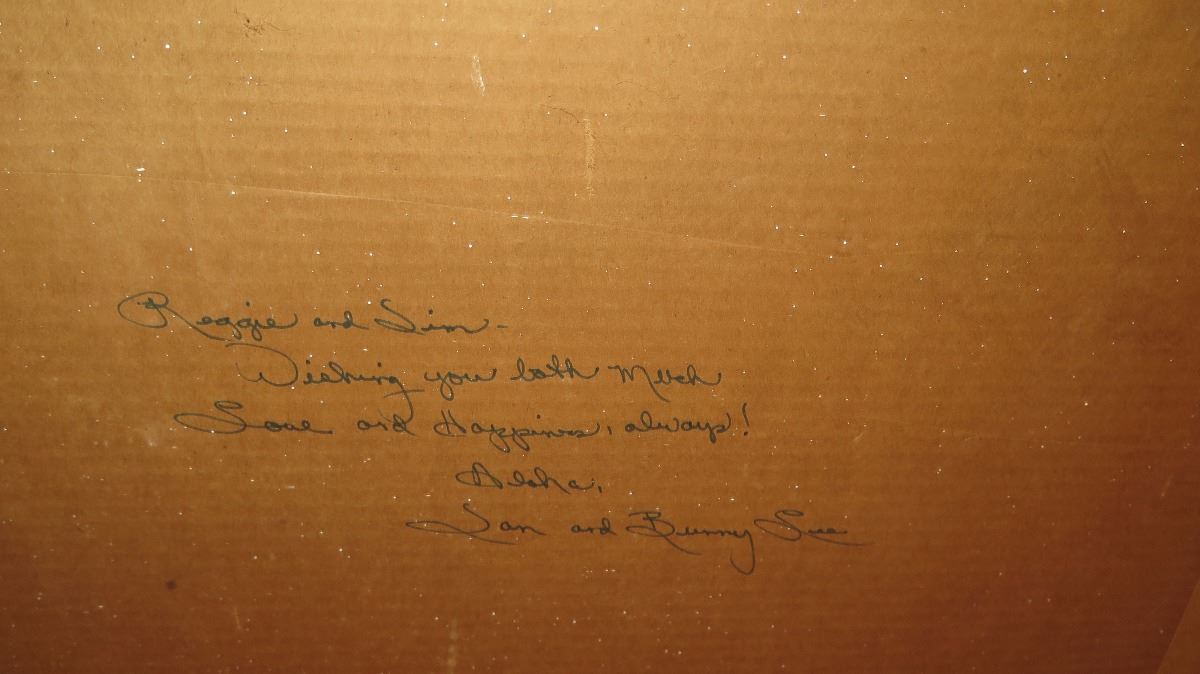 Reggie and Jim -
Wishing you both Much
Love and Happiness, always!
Aloha,
and Bunny Sue